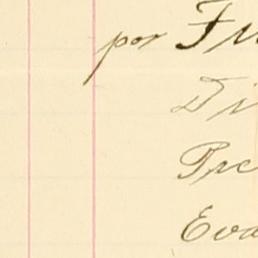 por Fu
Di
Pre
Eva